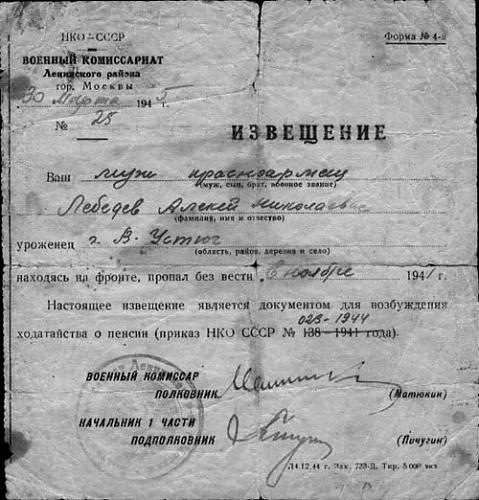 НКО-СССР
Форма № 4-а
ВОЕННЫЙ КОМИССАРИАТ
Ленинского района
гор. Москвы
30 Марта 1945 г.
№ 28
ИЗВЕЩЕНИЕ
Ваш муж красноармеец
(муж, сын, брат, военное звание)
Лебедев Алексей Николаевич
(фамилия, имя и отчество)
уроженец г. В-Устюг
(область, район, деревня и село)
находясь на фронте, пропал без вести в ноябре 1941 г.
Настоящее извещение является документом для возбуждения
028-1944
ходатайства о пенсии (приказ НКО СССР № 138-1941 года).
ВОЕННЫЙ КОМИССАР
ПОЛКОВНИК (Матюкин)
НАЧАЛЬНИК 1 ЧАСТИ
ПОДПОЛКОВНИК (Пичугин)
Л4.12.44 г. Зак. 723-Д. Тир. 5 000 экз